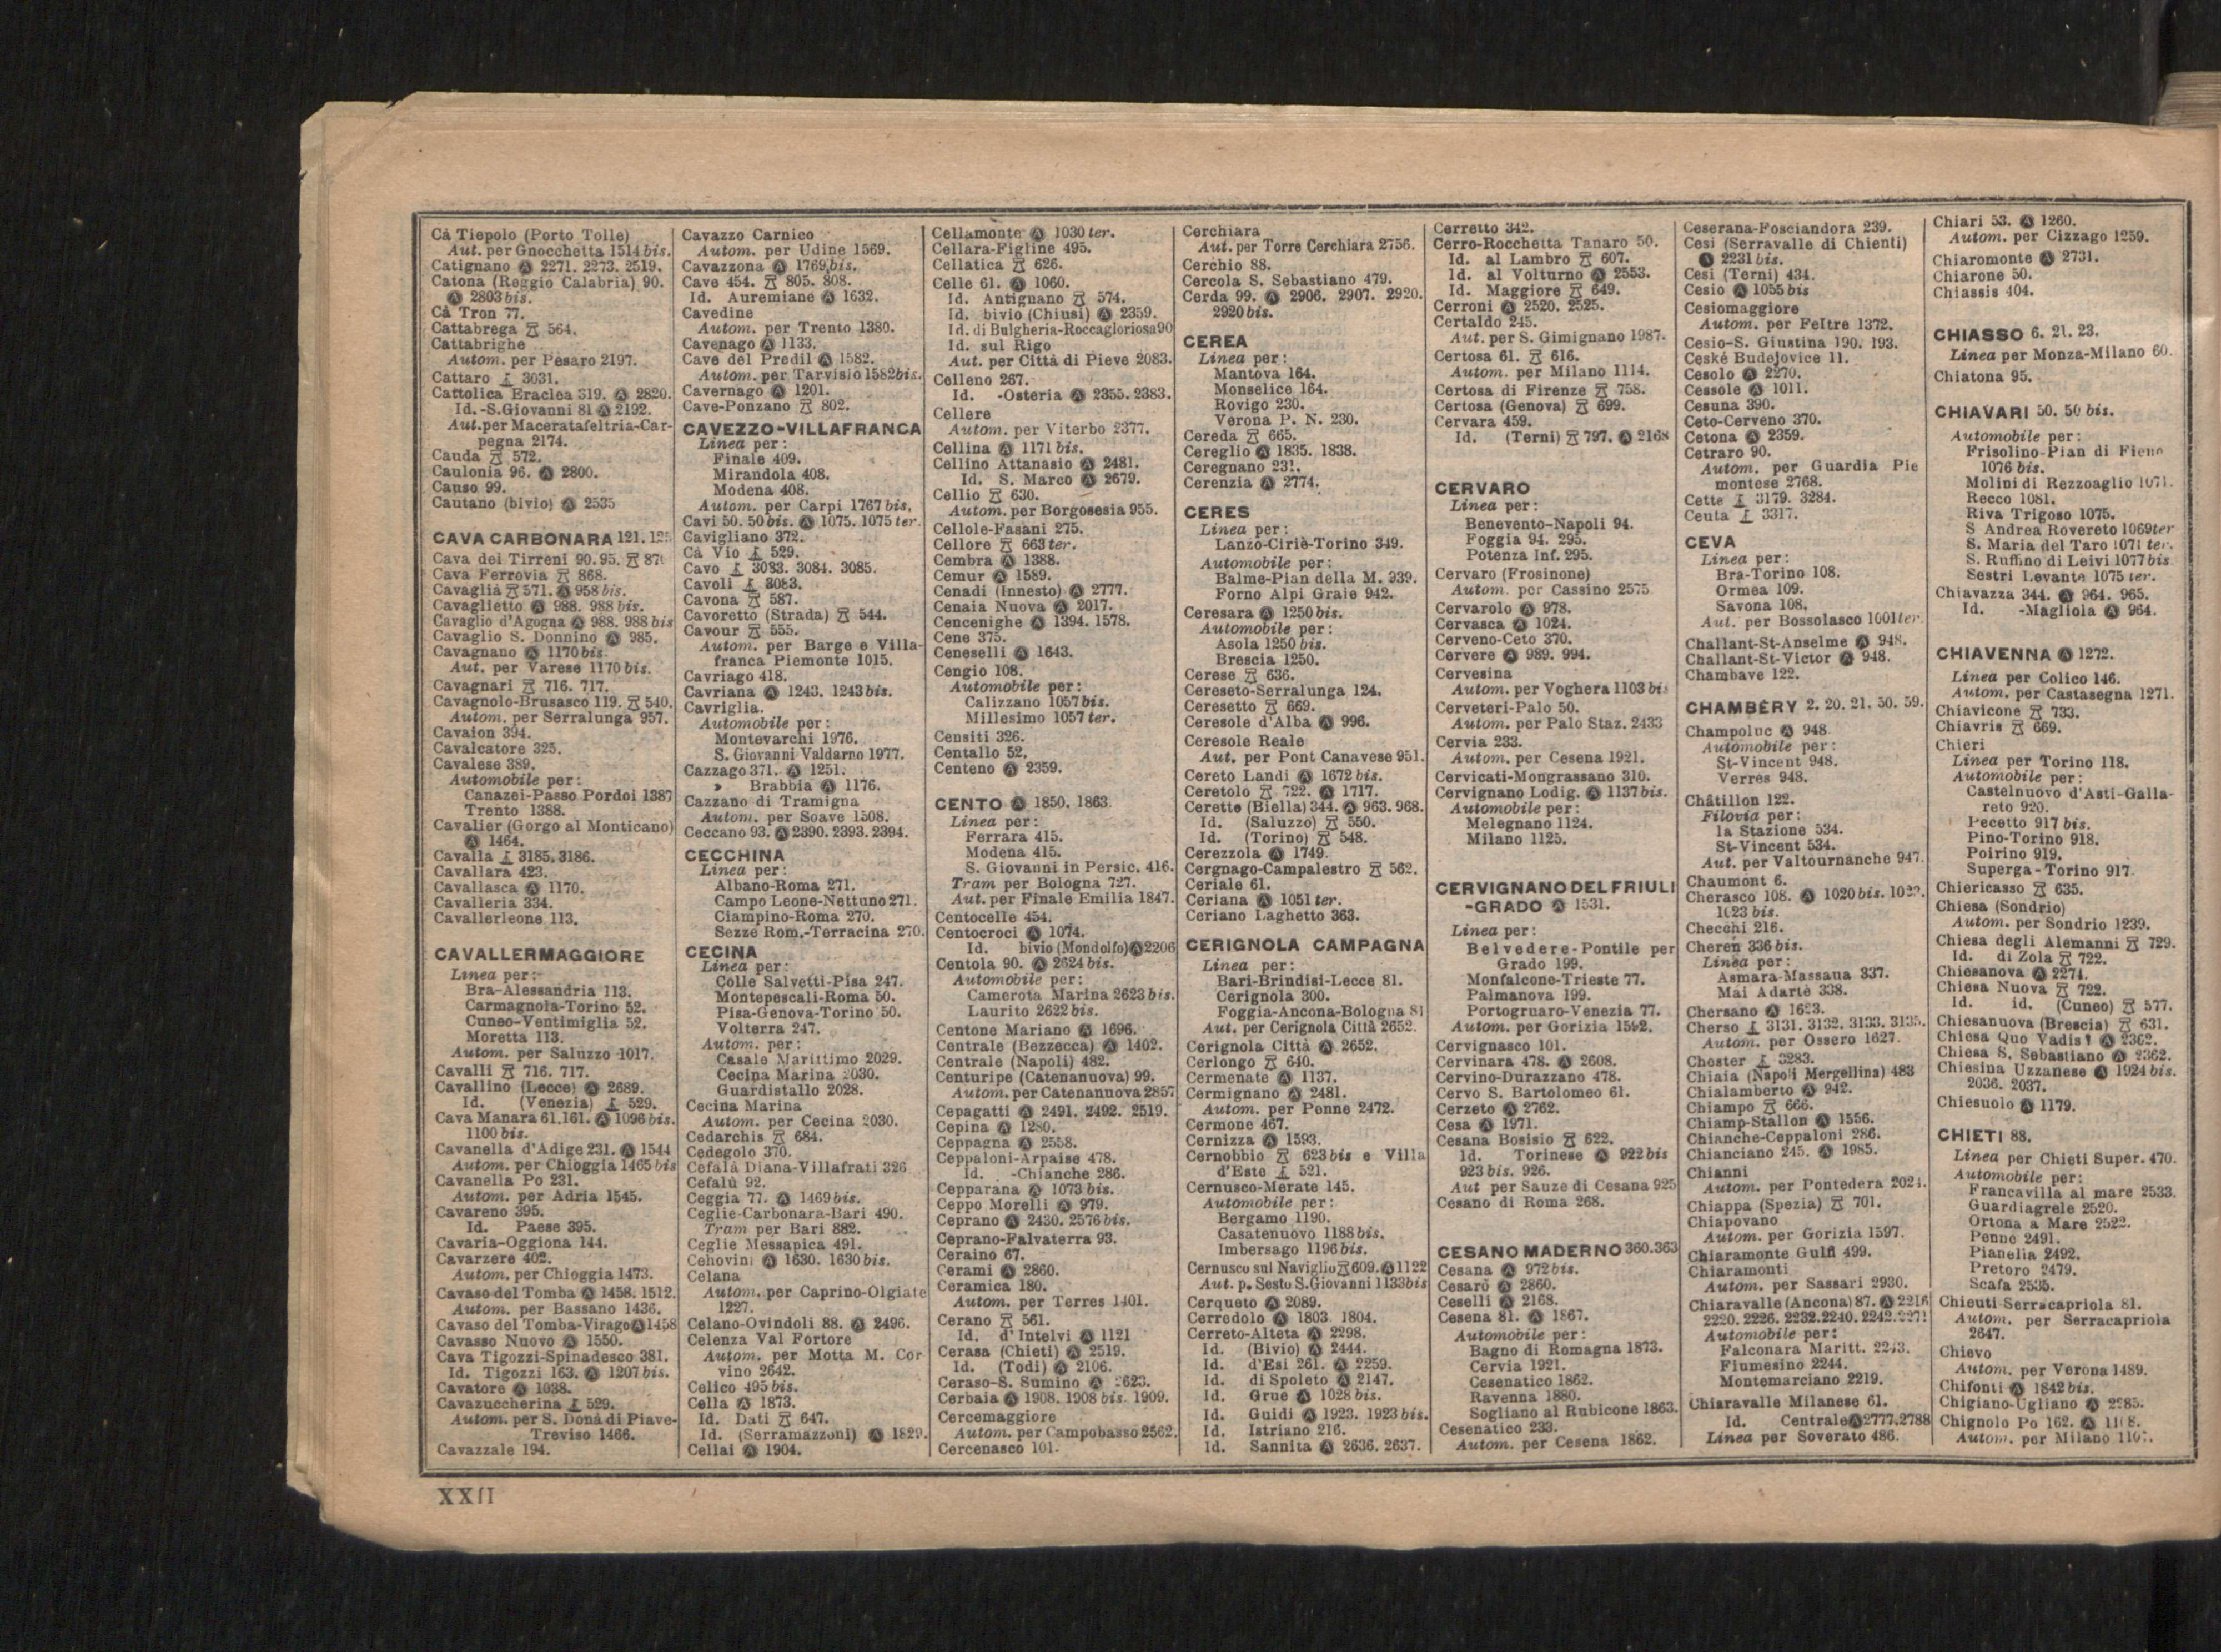 Cà Tiepolo (Porto Tolle)
Aut. per Gnocchetta 1514 bis.
Catignano Ⓐ 2271. 2273. 2519.
Catona (Reggio Calabria) 90.
Ⓐ 2803 bis.
Cà Tron 77.
Cattabrega 564.
Cattabrighe
Autom. per Pesaro 2197.
Cattaro 3031.
Cattolica Eraclea 319. Ⓐ 2820.
Id.-S.Giovanni 81 Ⓐ 2192.
Aut. per Maceratafeltria-Car-
pegna 2174.
Cauda 572.
Caulonia 96. Ⓐ 2800.
Causo 99.
Cautano (bivio) Ⓐ 2535
CAVA CARBONARA 121.
Cava dei Tirreni 90. 95.
Cava Ferrovia 868.
Cavaglià 571. Ⓐ 958 bis.
Cavaglietto Ⓐ 988. 988 bis.
Cavaglio d'Agogna Ⓐ 988. 988 bis
Cavaglio S. Donnino Ⓐ 985.
Cavagnano Ⓐ 1170 bis
Aut. per Varese 1170 bis.
Cavagnari 716. 717.
Cavagnolo-Brusasco 119. 540.
Autom. per Serralunga 957.
Cavaion 394.
Cavalcatore 325.
Cavalese 389.
Automobile per:
Canazei-Passo Pordoi 1387
Trento 1388.
Cavalier (Gorgo al Monticano)
Ⓐ 1464.
Cavalla 3185. 3186.
Cavallara 423.
Cavallasca Ⓐ 1170.
Cavalleria 334.
Cavallerleone 113.
CAVALLERMAGGIORE
Linea per:
Bra-Alessandria 113.
Carmagnola-Torino 52.
Cuneo-Ventimiglia 52.
Moretta 113.
Autom. per Saluzzo 1017.
Cavalli 716. 717.
Cavallino (Lecce) Ⓐ 2689.
Id. (Venezia) 529.
Cava Manara 61. 161. Ⓐ 1096 bis.
1100 bis.
Cavanella d'Adige 231. Ⓐ 1544
Autom. per Chioggia 1465 bis
Cavanella Po 231.
Autom. per Adria 1545.
Cavareno 395.
Id. Paese 395.
Cavaria-Oggiona 144.
Cavarzere 402.
Autom. per Chioggia 1473.
Cavaso del Tomba Ⓐ 1458. 1512.
Autom. per Bassano 1436.
Cavaso del Tomba-Virago Ⓐ 1458
Cavasso Nuovo Ⓐ 1550.
Cava Tigozzi-Spinadesco 381.
Id. Tigozzi 163. Ⓐ 1207 bis.
Cavatore Ⓐ 1038.
Cavazuccherina 529.
Autom. per S. Donà di Piave-
Treviso 1466.
Cavazzale 194.
Cavazzo Carnico
Autom. per Udine 1569.
Cavazzona Ⓐ 1769 bis.
Cave 454. 805. 808.
Id. Auremiane Ⓐ 1632.
Cavedine
Autom. per Trento 1380.
Cavenago Ⓐ 1133.
Cave del Predil Ⓐ 1582.
Autom. per Tarvisio 1582 bis.
Cavernago Ⓐ 1201.
Cave-Ponzano 802.
CAVEZZO-VILLAFRANCA
Linea per:
Finale 409.
Mirandola 408.
Modena 408.
Autom. per Carpi 1767 bis.
Cavi 50. 50 bis. Ⓐ 1075. 1075 ter.
Cavigliano 372.
Cà Vio 529.
Cavo 3083. 3084. 3085.
Cavoli 3083.
Cavona 587.
Cavoretto (Strada) 544.
Cavour 555.
Autom. per Barge e Villa-
franca Piemonte 1015.
Cavriago 418.
Cavriana Ⓐ 1243. 1243 bis.
Cavriglia.
Automobile per:
Montevarchi 1976.
S. Giovanni Valdarno 1977.
Cazzago 371. Ⓐ 1251.
» Brabbia Ⓐ 1176.
Cazzano di Tramigna
Autom. per Soave 1508.
Ceccano 93. Ⓐ 2390. 2393. 2394.
CECCHINA
Linea per:
Albano-Roma 271.
Campo Leone-Nettuno 271.
Ciampino-Roma 270.
Sezze Rom.-Terracina 270.
CECINA
Linea per:
Colle Salvetti-Pisa 247.
Montepescali-Roma 50.
Pisa-Genova-Torino 50.
Volterra 247.
Autom. per:
Casale Marittimo 2029.
Cecina Marina 2030.
Guardistallo 2028.
Cecina Marina
Autom. per Cecina 2030.
Cedarchis 684.
Cedegolo 370.
Cefalà Diana-Villafrati 326
Cefalù 92.
Ceggia 77. Ⓐ 1469 bis.
Ceglie-Carbonara-Bari 490.
Tram per Bari 882.
Ceglie Messapica 491.
Cehovini Ⓐ 1630. 1630 bis.
Celana
Autom. per Caprino-Olgiate
1227.
Celano-Ovindoli 88. Ⓐ 2496.
Celenza Val Fortore
Autom. per Motta M. Cor
vino 2642.
Celico 495 bis.
Cella Ⓐ 1873.
Id. Dati 647.
Id. (Serramazzoni) Ⓐ 1829.
Cellai Ⓐ 1904.
Cellamonte Ⓐ 1030 ter.
Cellara-Figline 495.
Cellatica 626.
Celle 61. Ⓐ 1060.
Id. Antignano 574.
Id. bivio (Chiusi) Ⓐ 2359.
Id. di Bulgheria-Roccagloriosa 90
Id. sul Rigo
Aut. per Città di Pieve 2083.
Celleno 267.
Id. -Osteria Ⓐ 2355. 2383.
Cellere
Autom. per Viterbo 2377.
Cellina Ⓐ 1171 bis.
Cellino Attanasio Ⓐ 2481.
Id. S. Marco Ⓐ 2679.
Cellio 630.
Autom. per Borgosesia 955.
Cellole-Fasani 275.
Cellore 663 ter.
Cembra Ⓐ 1388.
Cemur Ⓐ 1589.
Cenadi (Innesto) Ⓐ 2777.
Cenaia Nuova Ⓐ 2017.
Cencenighe Ⓐ 1394. 1578.
Cene 375.
Ceneselli Ⓐ 1643.
Cengio 108.
Automobile per:
Calizzano 1057 bis.
Millesimo 1057 ter.
Censiti 326.
Centallo 52.
Centeno Ⓐ 2359.
CENTO Ⓐ 1850. 1863.
Linea per:
Ferrara 415.
Modena 415.
S. Giovanni in Persic. 416.
Tram per Bologna 727.
Aut. per Finale Emilia 1847.
Centocelle 454.
Centocroci Ⓐ 1074.
Id. bivio (Mondolfo) Ⓐ 2206
Centola 90. Ⓐ 2624 bis.
Automobile per:
Camerota Marina 2623 bis.
Laurito 2622 bis.
Centone Mariano Ⓐ 1696.
Centrale (Bezzecca) Ⓐ 1402.
Centrale (Napoli) 482.
Centuripe (Catenanuova) 99.
Autom. per Catenanuova 2857
Cepagatti Ⓐ 2491. 2492. 2519.
Cepina Ⓐ 1280.
Ceppagna Ⓐ 2558.
Ceppaloni-Arpaise 478.
Id. -Chianche 286.
Cepparana Ⓐ 1073 bis.
Ceppo Morelli Ⓐ 979.
Ceprano Ⓐ 2430. 2576 bis.
Ceprano-Falvaterra 93.
Ceraino 67.
Cerami Ⓐ 2860.
Ceramica 180.
Autom. per Terres 1401.
Cerano 561.
Id. d'Intelvi Ⓐ 1121
Cerasa (Chieti) Ⓐ 2519.
Id. (Todi) Ⓐ 2106.
Ceraso-S. Sumino Ⓐ 2623.
Cerbaia Ⓐ 1908. 1908 bis. 1909.
Cercemaggiore
Autom. per Campobasso 2562.
Cercenasco 101.
Cerchiara
Aut. per Torre Cerchiara 2756.
Cerchio 88.
Cercola S. Sebastiano 479.
Cerda 99. Ⓐ 2906. 2907. 2920.
2920 bis.
CEREA
Linea per:
Mantova 164.
Monselice 164.
Rovigo 230.
Verona P. N. 230.
Cereda 665.
Cereglio Ⓐ 1835. 1838.
Ceregnano 231.
Cerenzia Ⓐ 2774.
CERES
Linea per:
Lanzo-Ciriè-Torino 349.
Automobile per:
Balme-Pian della M. 939.
Forno Alpi Graie 942.
Ceresara Ⓐ 1250 bis.
Automobile per:
Asola 1250 bis.
Brescia 1250.
Cerese 636.
Cereseto-Serralunga 124.
Ceresetto 669.
Ceresole d'Alba Ⓐ 996.
Ceresole Reale
Aut. per Pont Canavese 951.
Cereto Landi Ⓐ 1672 bis.
Ceretolo 722. Ⓐ 1717.
Ceretto (Biella) 344. Ⓐ 963. 968.
Id. (Saluzzo) 550.
Id. (Torino) 548.
Cerezzola Ⓐ 1749.
Cergnago-Campalestro 562.
Ceriale 61.
Ceriana Ⓐ 1051 ter.
Ceriano Laghetto 363.
CERIGNOLA CAMPAGNA
Linea per:
Bari-Brindisi-Lecce 81.
Cerignola 300.
Foggia-Ancona-Bologna 81
Aut. per Cerignola Città 2652.
Cerignola Città Ⓐ 2652.
Cerlongo 640.
Cermenate Ⓐ 1137.
Cermignano Ⓐ 2481.
Autom. per Penne 2472.
Cermone 467.
Cernizza Ⓐ 1593.
Cernobbio 623 bis e Villa
d'Este 521.
Cernusco-Merate 145.
Automobile per:
Bergamo 1190.
Casatenuovo 1188 bis.
Imbersago 1196 bis.
Cernusco sul Naviglio 609. Ⓐ 1122
Aut. p. Sesto S.Giovanni 1133 bis
Cerqueto Ⓐ 2089.
Cerredolo Ⓐ 1803. 1804.
Cerreto-Alteta Ⓐ 2298.
Id. (Bivio) Ⓐ 2444.
Id. d'Esi 261. Ⓐ 2259.
Id. di Spoleto Ⓐ 2147.
Id. Grue Ⓐ 1028 bis.
Id. Guidi Ⓐ 1923. 1923 bis.
Id. Istriano 216.
Id. Sannita Ⓐ 2636. 2637.
Cerretto 342.
Cerro-Rocchetta Tanaro 50.
Id. al Lambro 607.
Id. al Volturno Ⓐ 2553.
Id. Maggiore 649.
Cerroni Ⓐ 2520. 2525.
Certaldo 245.
Aut. per S. Gimignano 1987.
Certosa 61. 616.
Autom. per Milano 1114.
Certosa di Firenze 758.
Certosa (Genova) 699.
Cervara 459.
Id. (Terni) 797. Ⓐ 2168
CERVARO
Linea per:
Benevento-Napoli 94.
Foggia 94. 295.
Potenza Inf. 295.
Cervaro (Frosinone)
Autom. per Cassino 2575
Cervarolo Ⓐ 978.
Cervasca Ⓐ 1024.
Cerveno-Ceto 370.
Cervere Ⓐ 989. 994.
Cervesina
Autom. per Voghera 1103 bis
Cerveteri-Palo 50.
Autom. per Palo Staz. 2433
Cervia 233.
Autom. per Cesena 1921.
Cervicati-Mongrassano 310.
Cervignano Lodig. Ⓐ 1137 bis.
Automobile per:
Melegnano 1124.
Milano 1125.
CERVIGNANO DEL FRIULI
-GRADO Ⓐ 1531.
Linea per:
Belvedere-Pontile per
Grado 199.
Monfalcone-Trieste 77.
Palmanova 199.
Portogruaro-Venezia 77.
Autom. per Gorizia 1592.
Cervignasco 101.
Cervinara 478. Ⓐ 2608.
Cervino-Durazzano 478.
Cervo S. Bartolomeo 61.
Cerzeto Ⓐ 2762.
Cesa Ⓐ 1971.
Cesana Bosisio 622.
Id. Torinese Ⓐ 922 bis
923 bis. 926.
Aut per Sauze di Cesana 925
Cesano di Roma 268.
CESANO MADERNO 360. 363
Cesana Ⓐ 972 bis.
Cesarò Ⓐ 2860.
Ceselli Ⓐ 2168.
Cesena 81. Ⓐ 1867.
Automobile per:
Bagno di Romagna 1873.
Cervia 1921.
Cesenatico 1862.
Ravenna 1880.
Sogliano al Rubicone 1863.
Cesenatico 233.
Autom. per Cesena 1862.
Ceserana-Fosciandora 239.
Cesi (Serravalle di Chienti)
Ⓐ 2231 bis.
Cesi (Terni) 434.
Cesio Ⓐ 1055 bis
Cesiomaggiore
Autom. per Feltre 1372.
Cesio-S. Giustina 190. 193.
Ceské Budejovice 11.
Cesolo Ⓐ 2270.
Cessole Ⓐ 1011.
Cesuna 390.
Ceto-Cerveno 370.
Cetona Ⓐ 2359.
Cetraro 90.
Autom. per Guardia Pie
montese 2768.
Cette 3179. 3284.
Ceuta 3317.
CEVA
Linea per:
Bra-Torino 108.
Ormea 109.
Savona 108.
Aut. per Bossolasco 1001 ter.
Challant-St-Anselme Ⓐ 948.
Challant-St-Victor Ⓐ 948.
Chambave 122.
CHAMBÉRY 2. 20. 21. 50. 59.
Champoluc Ⓐ 948
Automobile per:
St-Vincent 948.
Verres 948.
Châtillon 122.
Filovia per:
la Stazione 534.
St-Vincent 534.
Aut. per Valtournanche 947.
Chaumont 6.
Cherasco 108. Ⓐ 1020 bis.
1023 bis.
Checchi 216.
Cheren 336 bis.
Linea per:
Asmara-Massaua 337.
Mai Adartè 338.
Chersano Ⓐ 1623.
Cherso 3131. 3132. 3133. 3135.
Autom. per Ossero 1627.
Chester 3283.
Chiaia (Napoli Mergellina) 483
Chialamberto Ⓐ 942.
Chiampo 666.
Chiamp-Stallon Ⓐ 1556.
Chianche-Ceppaloni 286.
Chianciano 245. Ⓐ 1985.
Chianni
Autom. per Pontedera 2021.
Chiappa (Spezia) 701.
Chiapovano
Autom. per Gorizia 1597.
Chiaramonte Gulfi 499.
Chiaramonti
Autom. per Sassari 2930.
Chiaravalle (Ancona) 87. Ⓐ 2216
2220. 2226. 2232. 2240. 2242. 2271
Automobile per:
Falconara Maritt. 2243.
Fiumesino 2244.
Montemarciano 2219.
Chiaravalle Milanese 61.
Id. Centrale Ⓐ 2777. 2788
Linea per Soverato 486.
Chiari 53. Ⓐ 1260.
Autom. per Cizzago 1259.
Chiaromonte Ⓐ 2731.
Chiarone 50.
Chiassis 404.
CHIASSO 6. 21. 23.
Linea per Monza-Milano 60.
Chiatona 95.
CHIAVARI 50. 50 bis.
Automobile per:
Frisolino-Pian di Fieno
1076 bis.
Molini di Rezzoaglio 1071.
Recco 1081.
Riva Trigoso 1075.
S Andrea Rovereto 1069 ter
S. Maria del Taro 1071 ter.
S. Ruffino di Leivi 1077 bis
Sestri Levante 1075 ter.
Chiavazza 344. Ⓐ 964. 965.
Id. -Magliola Ⓐ 964.
CHIAVENNA Ⓐ 1272.
Linea per Colico 146.
Autom. per Castasegna 1271.
Chiavicone 733.
Chiavris 669.
Chieri
Linea per Torino 118.
Automobile per:
Castelnuovo d'Asti-Galla-
reto 920.
Pecetto 917 bis.
Pino-Torino 918.
Poirino 919.
Superga-Torino 917.
Chiericasso 635.
Chiesa (Sondrio)
Autom. per Sondrio 1239.
Chiesa degli Alemanni 729.
Id. di Zola 722.
Chiesanova Ⓐ 2274.
Chiesa Nuova 722.
Id. id. (Cuneo) 577.
Chiesanuova (Brescia) 631.
Chiesa Quo Vadis? Ⓐ 2362.
Chiesa S. Sebastiano Ⓐ 2362.
Chiesina Uzzanese Ⓐ 1924 bis.
2036. 2037.
Chiesuolo Ⓐ 1179.
CHIETI 88.
Linea per Chieti Super. 470.
Automobile per:
Francavilla al mare 2533.
Guardiagrele 2520.
Ortona a Mare 2522.
Penne 2491.
Pianella 2492.
Pretoro 2479.
Scafa 2535.
Chieuti Serracapriola 81.
Autom. per Serracapriola
2647.
Chievo
Autom. per Verona 1489.
Chifonti Ⓐ 1842 bis.
Chigiano-Ugliano Ⓐ 2285.
Chignolo Po 162. Ⓐ
Autom. per Milano
XXII